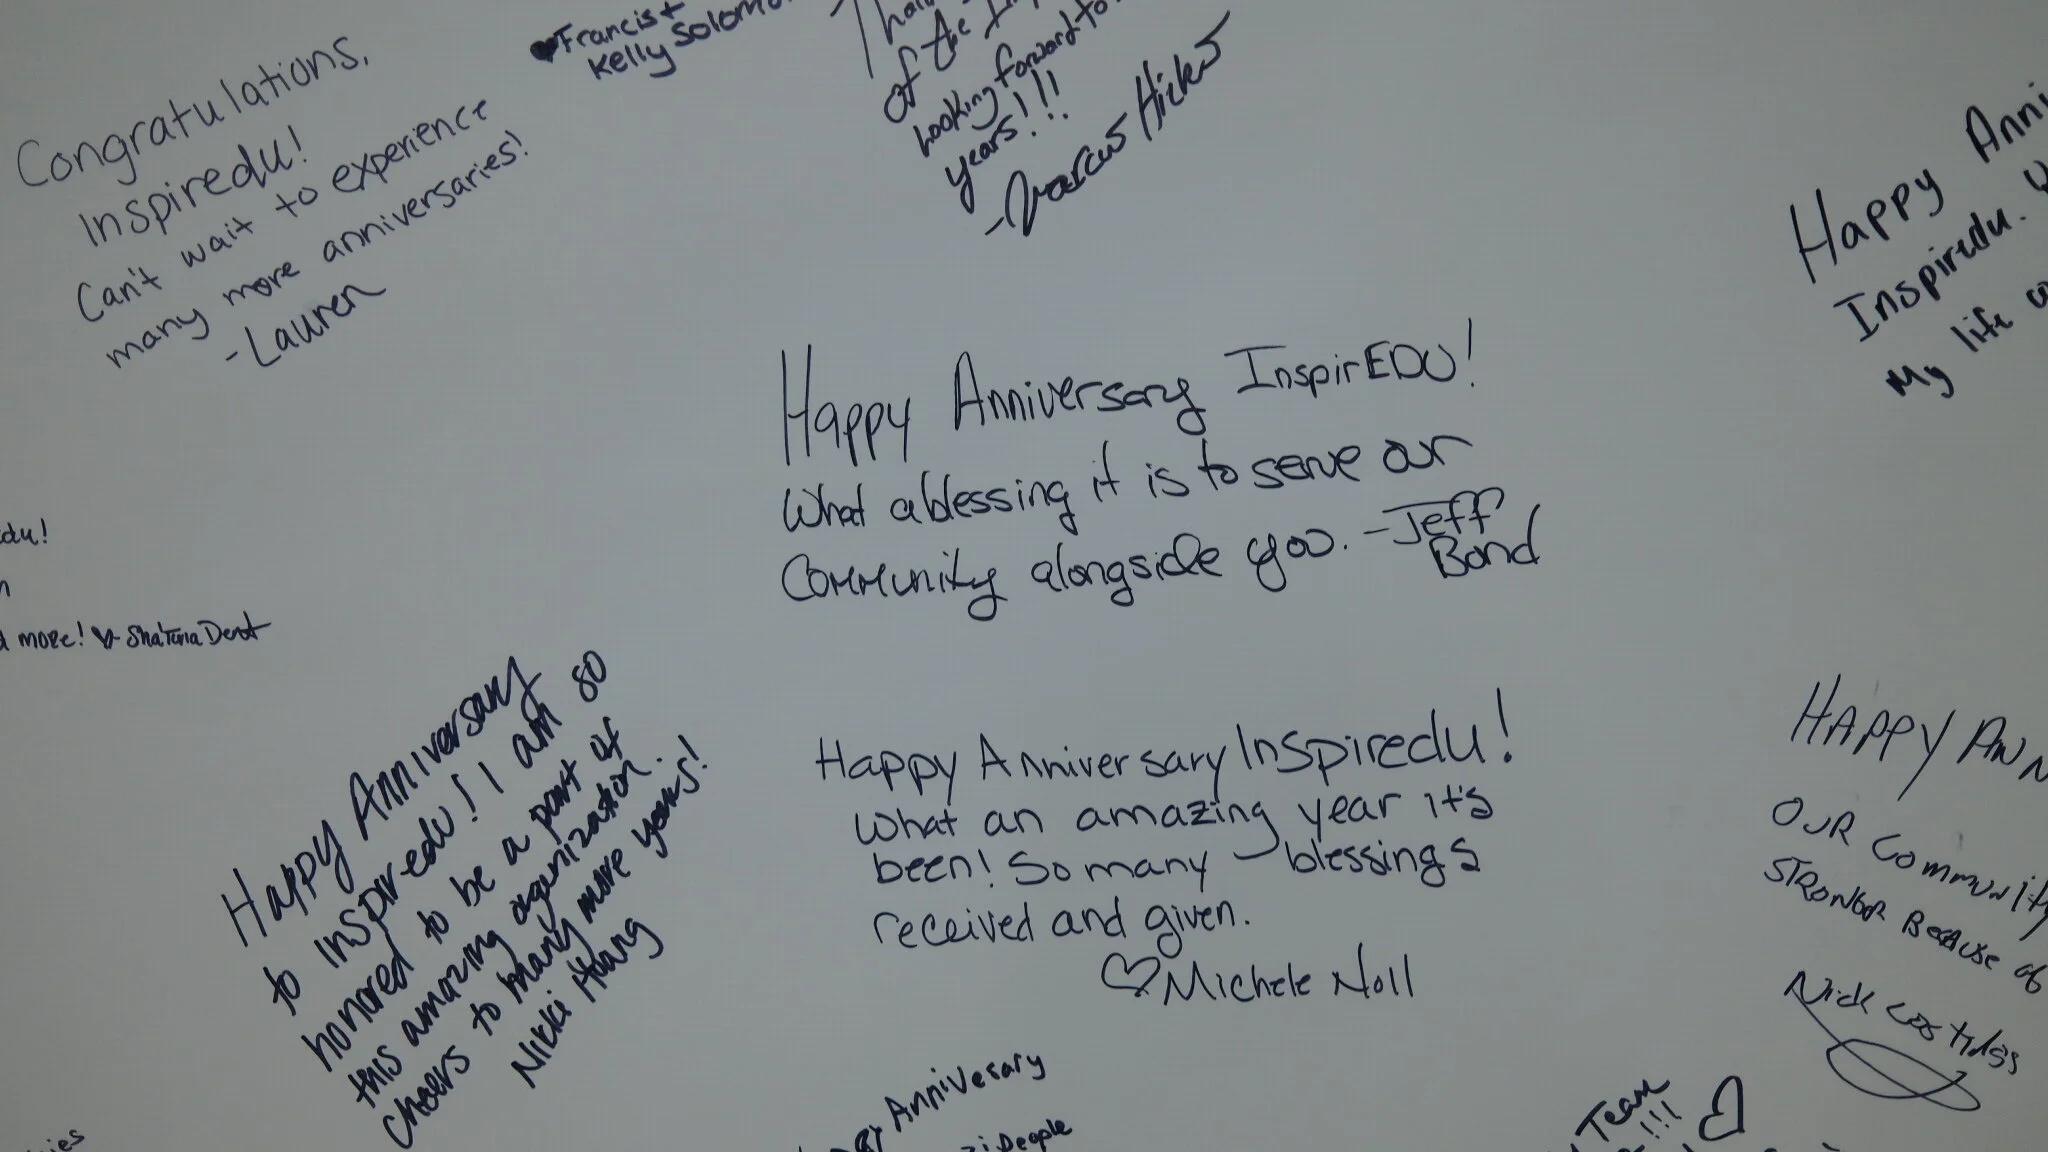 Congratulations,
Inspiredu!
Can't wait to experience
many more anniversaries!
-Lauren
Francis +
Kelly
of the
Looking forward to
years!!!
-Marcus Hicks
Happy
Inspiredu.
My life
Happy Anniversary InspirEDU!
What a blessing it is to serve our
Community alongside you. -Jeff
Bond
more!
Happy Anniversary
to Inspiredu! I am so
honored to be a part of
this amazing organization.
Cheers to many more years!
Nikki Hwang
Happy Anniversary Inspiredu!
What an amazing year it's
been! So many blessings
received and given.
Michele Noll
HAPPY
OUR Community
STRONGER BECAUSE of
Nick
Anniversary
People
Team
!!!